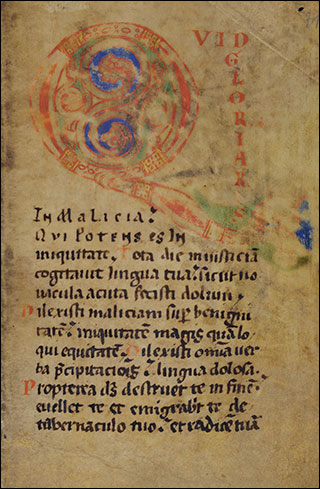 QVID
GLORIAR
IN MALICIA.
QVI POTENS ES IN
iniquitate. Tota die iniusticiā
cogitauit lingua tua. sicut no
uacula acuta fecisti dolum.
Dilexisti maliciam sup̄ benigni
tatē. iniquitatem magis quā lo
qui equitatē. Dilexisti om̄ia uer
ba p̄cipitaciōis. lingua dolosa.
Propterea d̄s destruet te in finē.
euellet te et emigrab̄t te de
tabernaculo tuo. et radicē tuā